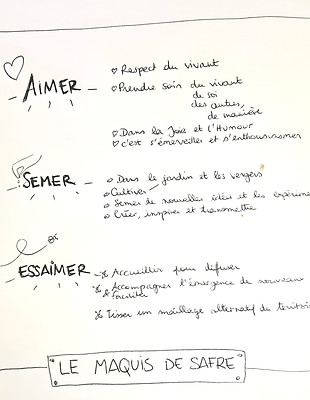 ♡ Respect du vivant
AIMER
♡ Prendre soin du vivant
de soi
des autres,
de manière
♡ Dans la Joie et l'Humour
♡ c'est s'émerveiller et s'enthousiasmer
SEMER
Dans le jardin et les vergers
Cultiver
Semer de nouvelles idées et les expérime
Créer, inspirer et transmettre
ESSAIMER
Accueillir pour diffuser
Accompagner l'émergence de nouveaux
& faciliter
Tisser un maillage alternatif du territoi
LE MAQUIS DE SAFRE